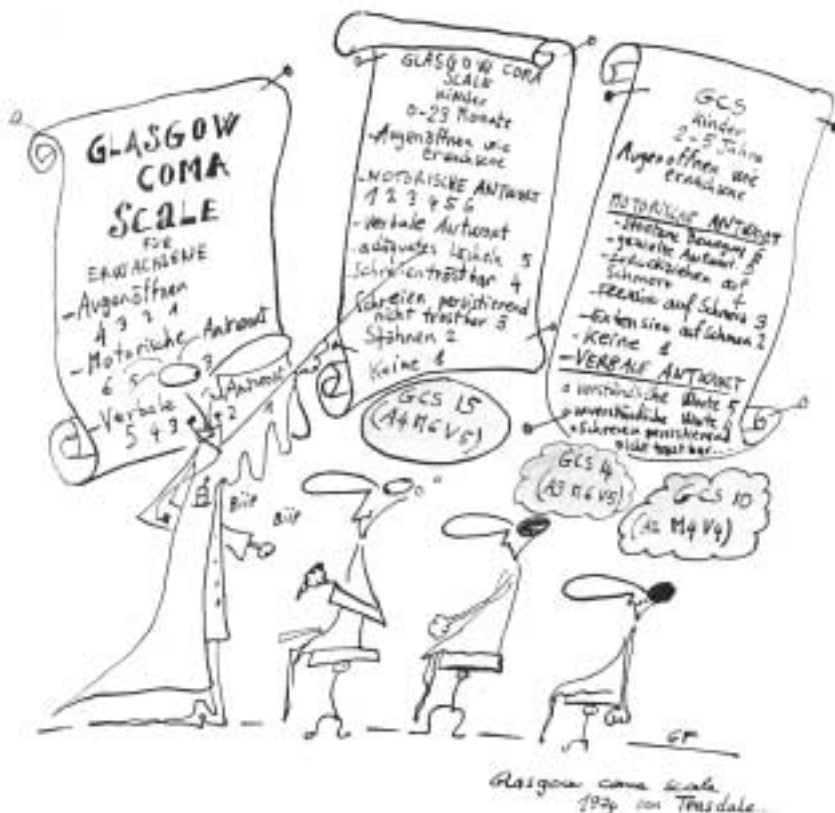 GLASGOW
COMA
SCALE
FÜR
ERWACHSENE
-Augenöffnen
4 3 2 1
-Motorische Antwort
6 5 3
-Verbale Antwort
5 4 3 2 1
GLASGOW COMA
SCALE
Kinder
0-23 Monate
-Augenöffnen wie
erwachsene
-MOTORISCHE ANTWORT
1 2 3 4 5 6
-Verbale Antwort
-adäquates Lächeln 5
Schreien tröstbar 4
Schreien persistierend
nicht tröstbar 3
Stöhnen 2
Keine 1
GCS
Kinder
2-5 Jahre
Augenöffnen wie
erwachsene
MOTORISCHE ANTWORT
-spontane Bewegung 6
-gezielte Antwort 5
-zurückziehen auf
Schmerz 4
-Flexion auf Schmerz 3
-Extension auf Schmerz 2
-Keine 1
-VERBALE ANTWORT
verständliche Worte 5
unverständliche Worte 4
Schreien persistierend
nicht tröstbar...
GCS 15
(A4 M6 V5)
GCS 4
(A3 M6 V5)
GCS 10
(A2 M4 V4)
Biip
Biip
GF
Glasgow coma scale
1974 von Teasdale...